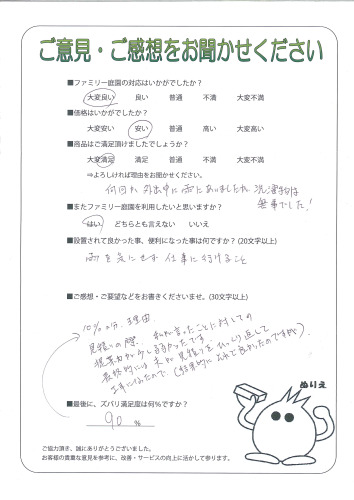 ご意見・ご感想をお聞かせください
■ファミリー庭園の対応はいかがでしたか？
大変良い 良い 普通 不満 大変不満
■価格はいかがでしたか？
大変安い 安い 普通 高い 大変高い
■商品はご満足頂けましたでしょうか？
大変満足 満足 普通 不満 大変不満
⇒よろしければ理由をお聞かせください。
何回か外出中に雨にあいましたが、洗濯物は
無事でした！
■またファミリー庭園を利用したいと思いますか？
はい どちらとも言えない いいえ
■設置されて良かった事、便利になった事は何ですか？(20文字以上)
雨を気にせず仕事に行けること
■ご感想・ご要望などをお書きくださいませ。(30文字以上)
10%の分、理由
見積りの際、私が言ったことに対しての
提案力が少し弱かったです。
最終的には 見積りをくり返して
(結果的にはこれで良かったのですが)
■最後に、ズバリ満足度は何%ですか？
90 %
ぬりえ
ご協力頂き、誠にありがとうございました。
お客様の貴重な意見を参考に、改善・サービスの向上に活かして参ります。